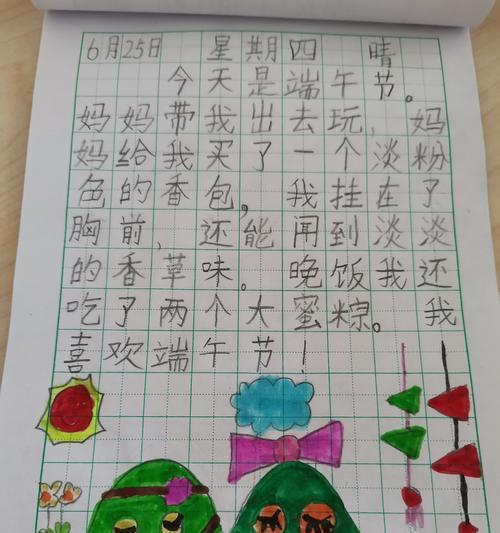 6月25日 星期四 晴
今天是端午节。
妈妈带我出去玩，妈
妈给我买了一个淡粉
色的香包，我挂在了
胸前，还能闻到淡淡
的香草味。晚饭我还
吃了两个大蜜粽。我
喜欢端午节！